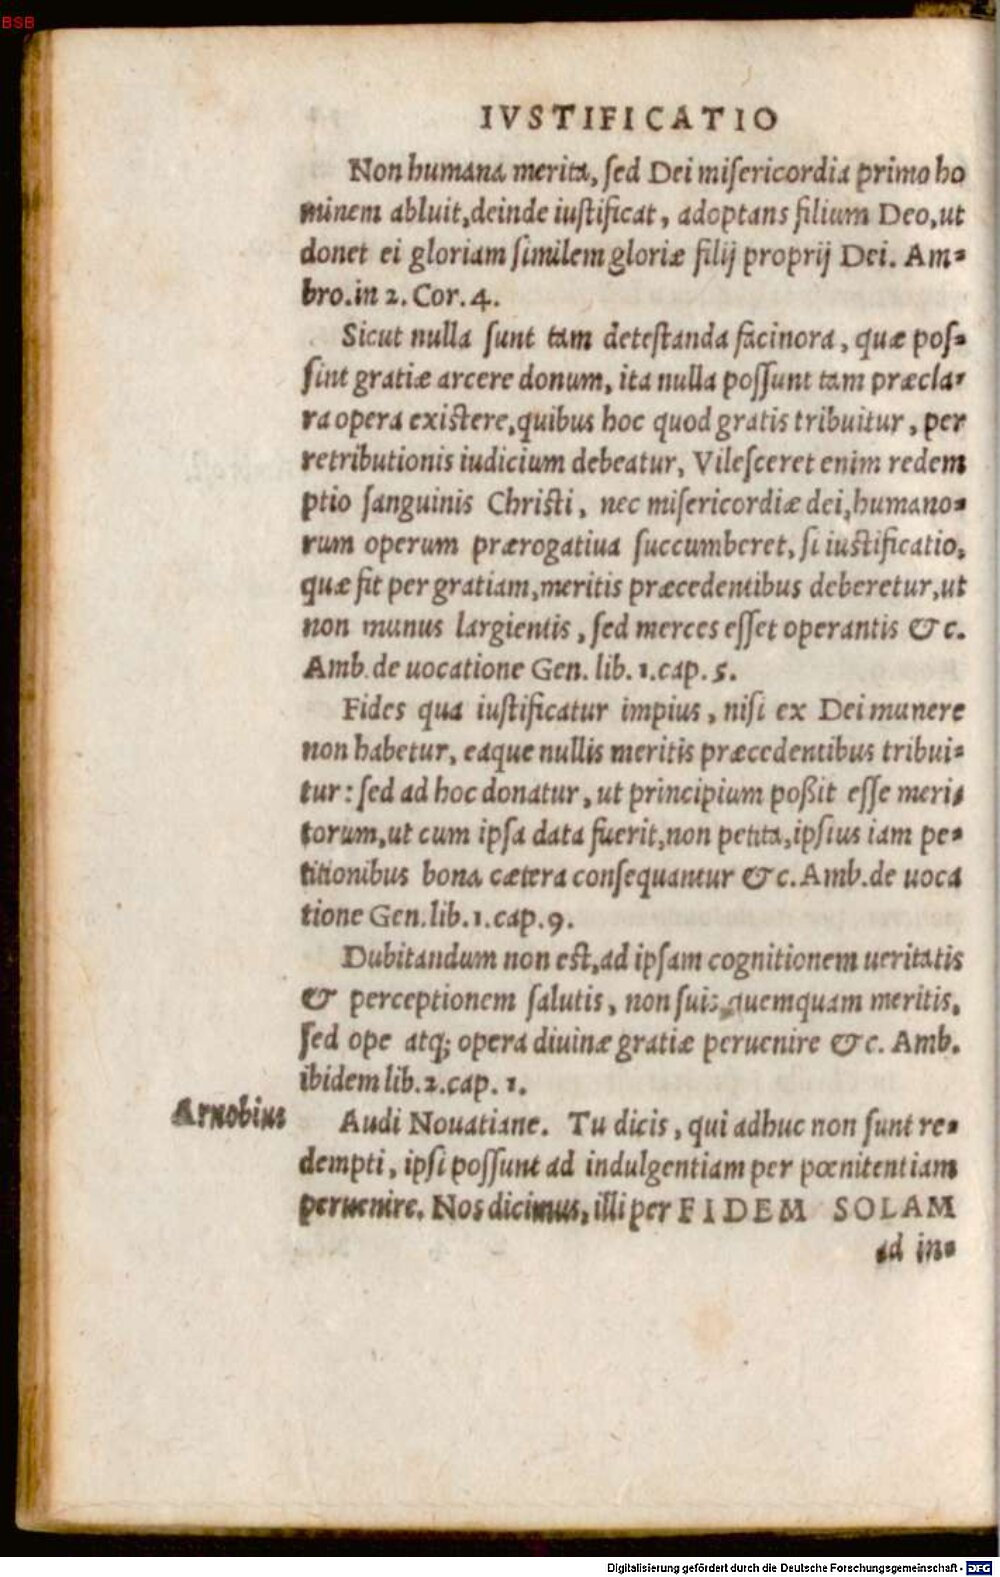 BSB
IVSTIFICATIO
Non humana merita, sed Dei misericordia primo ho
minem abluit, deinde iustificat, adoptans filium Deo, ut
donet ei gloriam similem gloriæ filij proprij Dei. Am=
bro. in 2. Cor. 4.
Sicut nulla sunt tam detestanda facinora, quæ pos=
sint gratiæ arcere donum, ita nulla possunt tam præcla=
ra opera existere, quibus hoc quod gratis tribuitur, per
retributionis iudicium debeatur, Vilesceret enim redem
ptio sanguinis Christi, nec misericordiæ dei, humano=
rum operum prærogatiua succumberet, si iustificatio,
quæ fit per gratiam, meritis præcedentibus deberetur, ut
non munus largientis, sed merces esset operantis &c.
Amb. de uocatione Gen. lib. 1. cap. 5.
Fides qua iustificatur impius, nisi ex Dei munere
non habetur, eaque nullis meritis præcedentibus tribui=
tur: sed ad hoc donatur, ut principium poßit esse meri=
torum, ut cum ipsa data fuerit, non petita, ipsius iam pe=
titionibus bona cætera consequantur &c. Amb. de uoca
tione Gen. lib. 1. cap. 9.
Dubitandum non est, ad ipsam cognitionem ueritatis
& perceptionem salutis, non suis quemquam meritis,
sed ope atq; opera diuinæ gratiæ peruenire &c. Amb.
ibidem lib. 2. cap. 1.
Arnobius
Audi Nouatiane. Tu dicis, qui adhuc non sunt re=
dempti, ipsi possunt ad indulgentiam per pœnitentiam
peruenire. Nos dicimus, illi per FIDEM SOLAM
ad in=
Digitalisierung gefördert durch die Deutsche Forschungsgemeinschaft - DFG